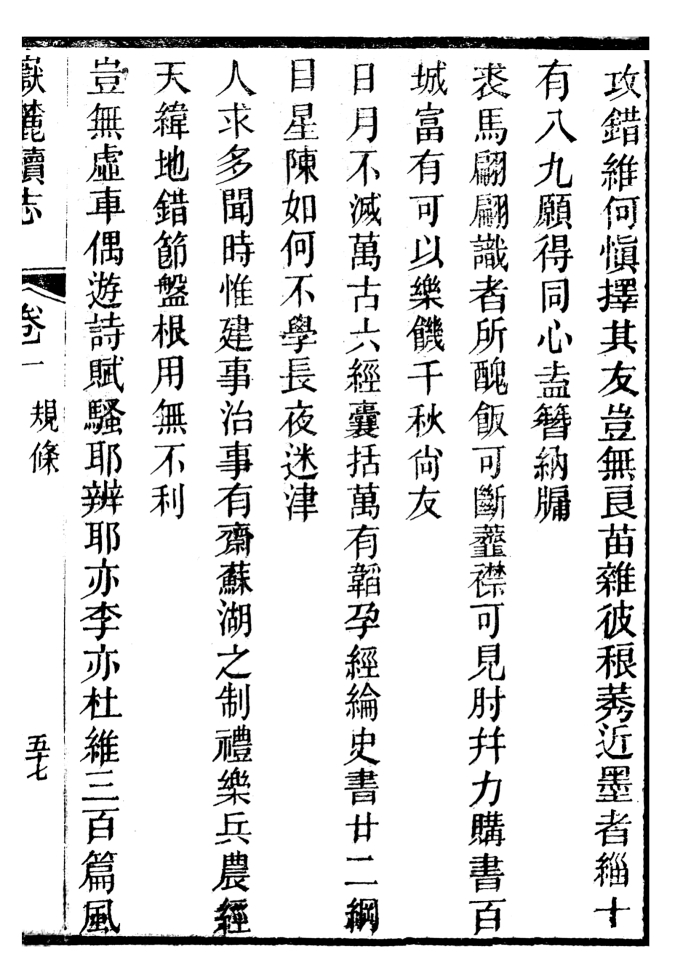 攻錯維何慎擇其友豈無良苗雜彼稂莠近墨者緇十
有八九願得同心盍簪納牖
裘馬翩翩識者所醜飯可斷虀襟可見肘幷力購書百
城富有可以樂饑千秋尙友
日月不滅萬古六經囊括萬有韜孕經綸史書廿二綱
目星陳如何不學長夜迷津
人求多聞時惟建事治事有齋蘇湖之制禮樂兵農經
天緯地錯節盤根用無不利
豈無虛車偶遊詩賦騷耶辨耶亦李亦杜維三百篇風
嶽麓續志 卷一 規條 五十七